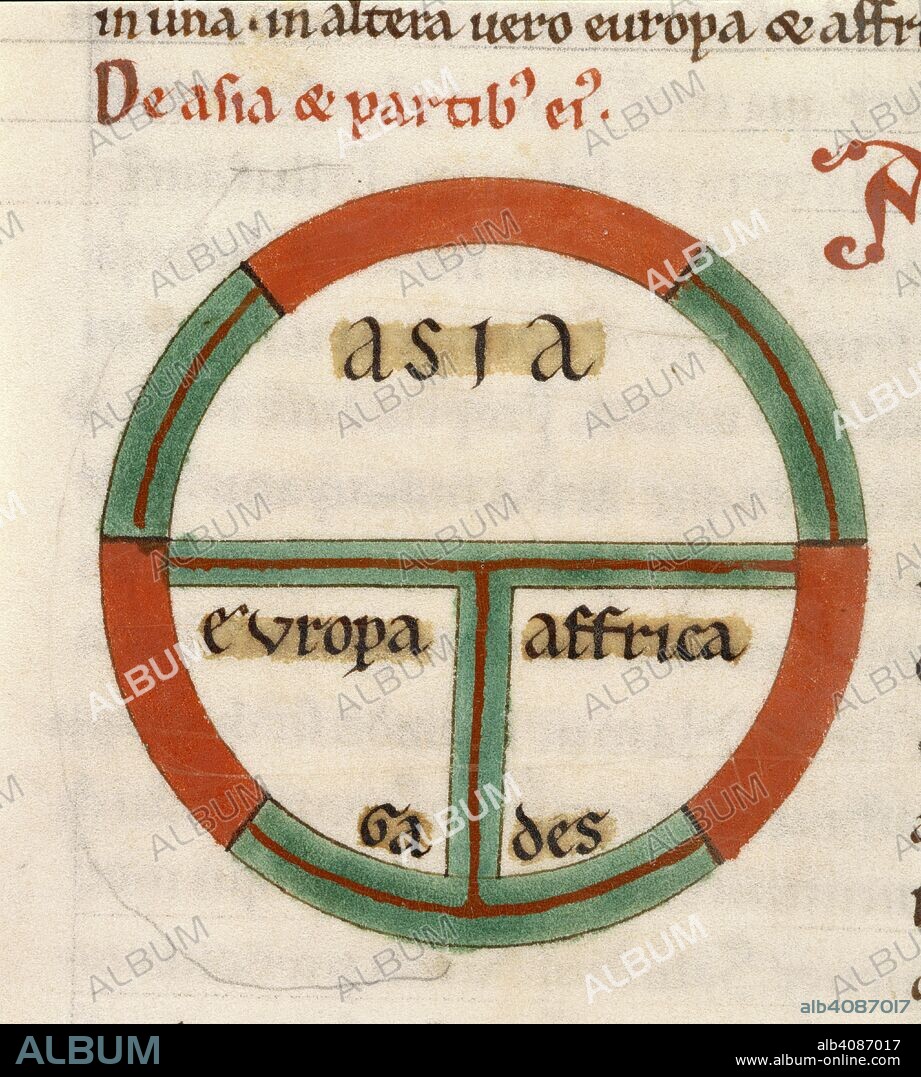 in una · in altera uero europa & affr
De asia & partib⁹ ei⁹.
asia
europa affrica
Ga des
ALBUM
alb4087017
ALBUM
alb4087017
www.album-online.com